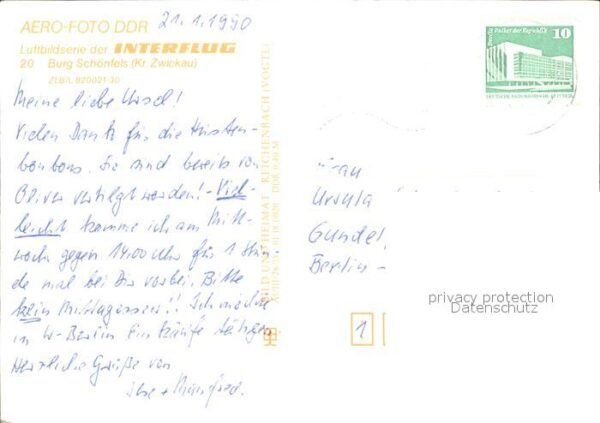 AERO-FOTO DDR 21.1.1990
Luftbildserie der INTERFLUG
20 Burg Schönfels (Kr. Zwickau)
ZLB/L 820021-30
Meine liebe Ursel!
Vielen Dank für die Husten-
bonbons. Sie sind bereits von
Oliver vertilgt worden! – Viel-
leicht komme ich am Mitt-
woch gegen 14.00 Uhr für 1 Stun-
de mal bei Dir vorbei. Bitte
kein Mittagessen!! Ich möchte
in W-Berlin Einkäufe tätigen
Herzliche Grüße von
+ Manfred.
BILD UND HEIMAT REICHENBACH (VOGTL)
10
Palast der Republik
Frau
Ursula
Gundel,
Berlin –
privacy protection
Datenschutz
1